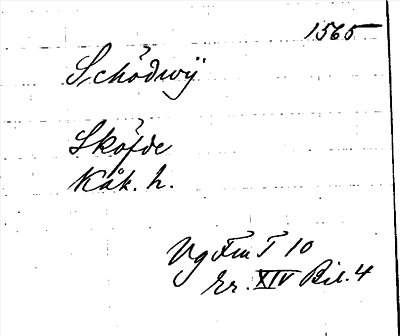 1565
Schödwij
Sköfde
Kåk. h.
Vg Fm T 10
rr. XIV Bil. 4